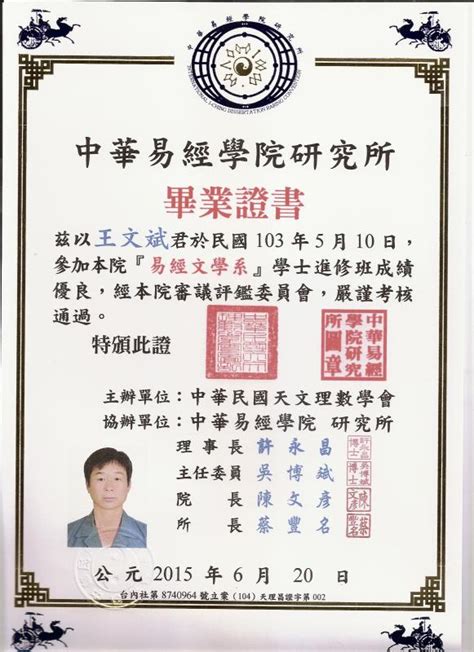 中華易經學院研究所
INTERNATIONAL I-CHING DISSERTATION
中華易經學院研究所
畢業證書
茲以王文斌君於民國103年5月10日，
參加本院『易經文學系』學士進修班成績
優良，經本院審議評鑑委員會，嚴謹考核
通過。
特頒此證
中華易經
學院研究
所圖章
主辦單位：中華民國天文理數學會
協辦單位：中華易經學院 研究所
理事長 許永昌
主任委員 吳博斌
院長 陳文彥
所長 蔡豐名
公元2015年6月20日
台內社第8740964號立案（104）天理昌證字第002